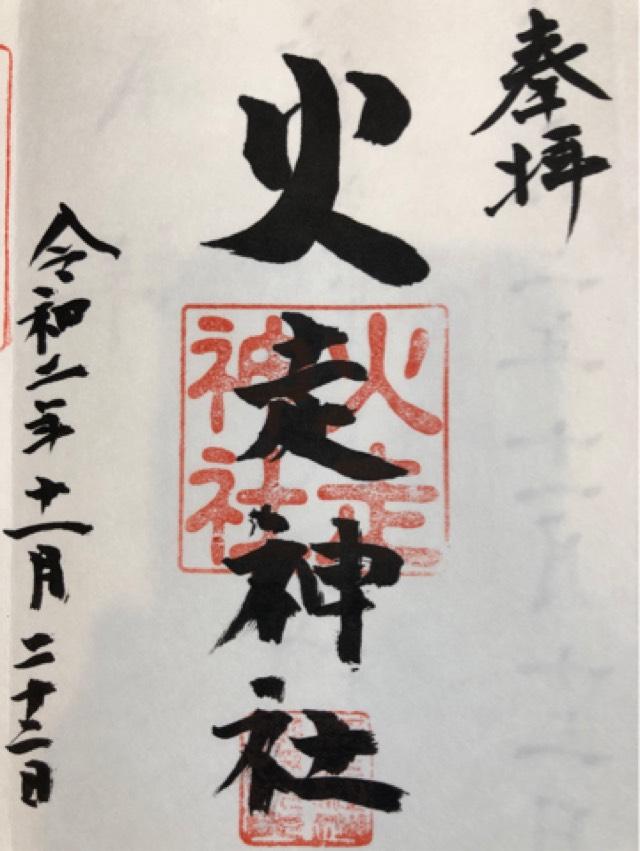 奉拝
火走神社
火走
神社
令和二年十一月二十二日